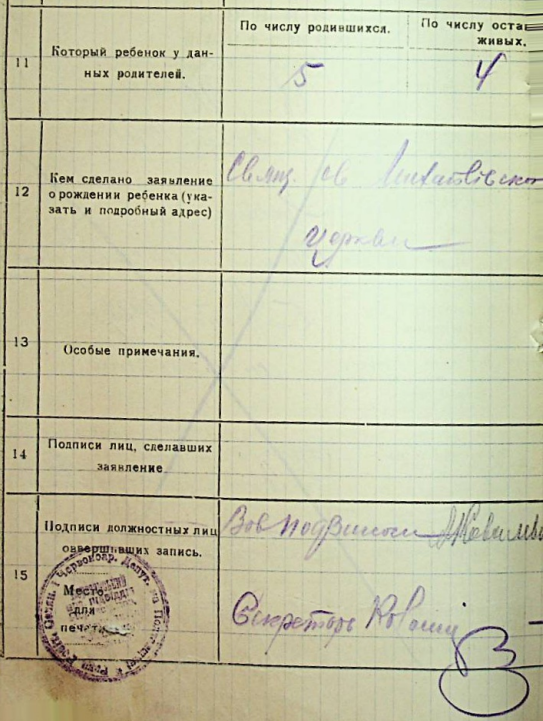 По числу родившихся. По числу оста
живых.
11 Который ребенок у дан-
ных родителей. 5 4
12 Кем сделано заявление
о рождении ребенка (ука-
зать и подробный адрес)
Свящ. св Михайлівской
церкви
13 Особые примечания.
14 Подписи лиц, сделавших
заявление.
15 Подписи должностных лиц
совершивших запись.
Место
для
печати
Секретарь
Червоноар. Депут.